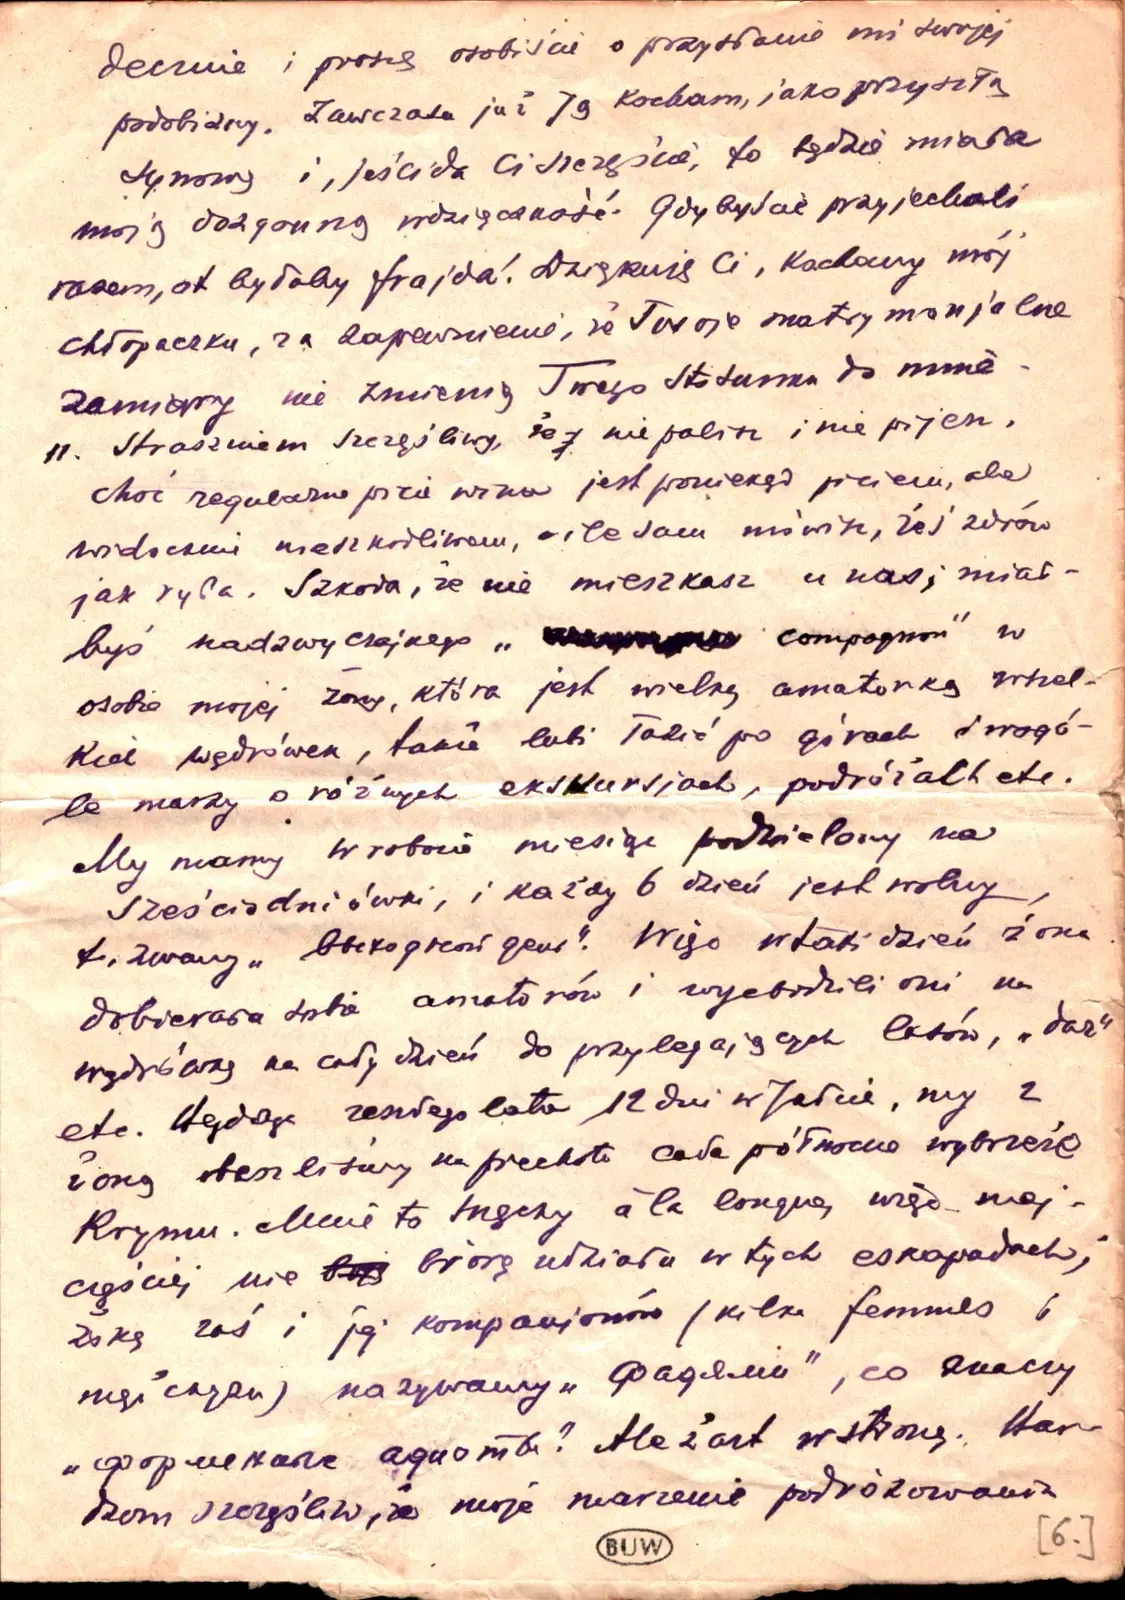 decznie i proszę osobiście o przysłanie mi swojej
podobizny. Zawczasu już Ją kocham, jako przyszłą
synową i, jeśli da Ci szczęście, to będzie miała
moją dozgonną wdzięczność. Gdybyście przyjechali
razem, ot byłaby frajda! Dziękuję Ci, kochany mój
chłopaczku, za zapewnienie, że Twoje matrymonjalne
zamiary nie zmienią Twego stosunku do mnie.
11. Straszniem szczęśliwy, że nie palisz i nie pijesz,
choć regularne picie wina jest poniekąd piciem, ale
widocznie nieszkodliwem, o ile sam mówisz, żeś zdrów
jak ryba. Szkoda, że nie mieszkasz u nas; miał-
byś nadzwyczajnego „ compagnon" w
osobie mojej żony, która jest wielką amatorką wszel-
kich wędrówek, także lubi łazić po górach i wogó-
le marzy o różnych ekskursjach, podróżach etc.
My mamy w robocie miesiąc podzielony na
sześciodniówki, i każdy 6 dzień jest wolny,
t. zwany „ ". Więc w taki dzień żona
dobierała sobie amatorów i wychodzili oni na
wędrówkę na cały dzień do przylegających lasów, „daz"
etc. Będąc zeszłego lata 12 dni w Jałcie, my z
żoną obeszliśmy na piechotę całe północne wybrzeże
Krymu. Mnie to męczy à la longue, więc naj-
częściej nie biorę udziału w tych eskapadach;
żonę zaś i jej kompanionów (kilka femmes i
mężczyzn) nazywamy „ ", co znaczy
„ . Ale żart w stronę. Bar-
dzom szczęśliw, że moje marzenie podróżowania
BUW
[6.]